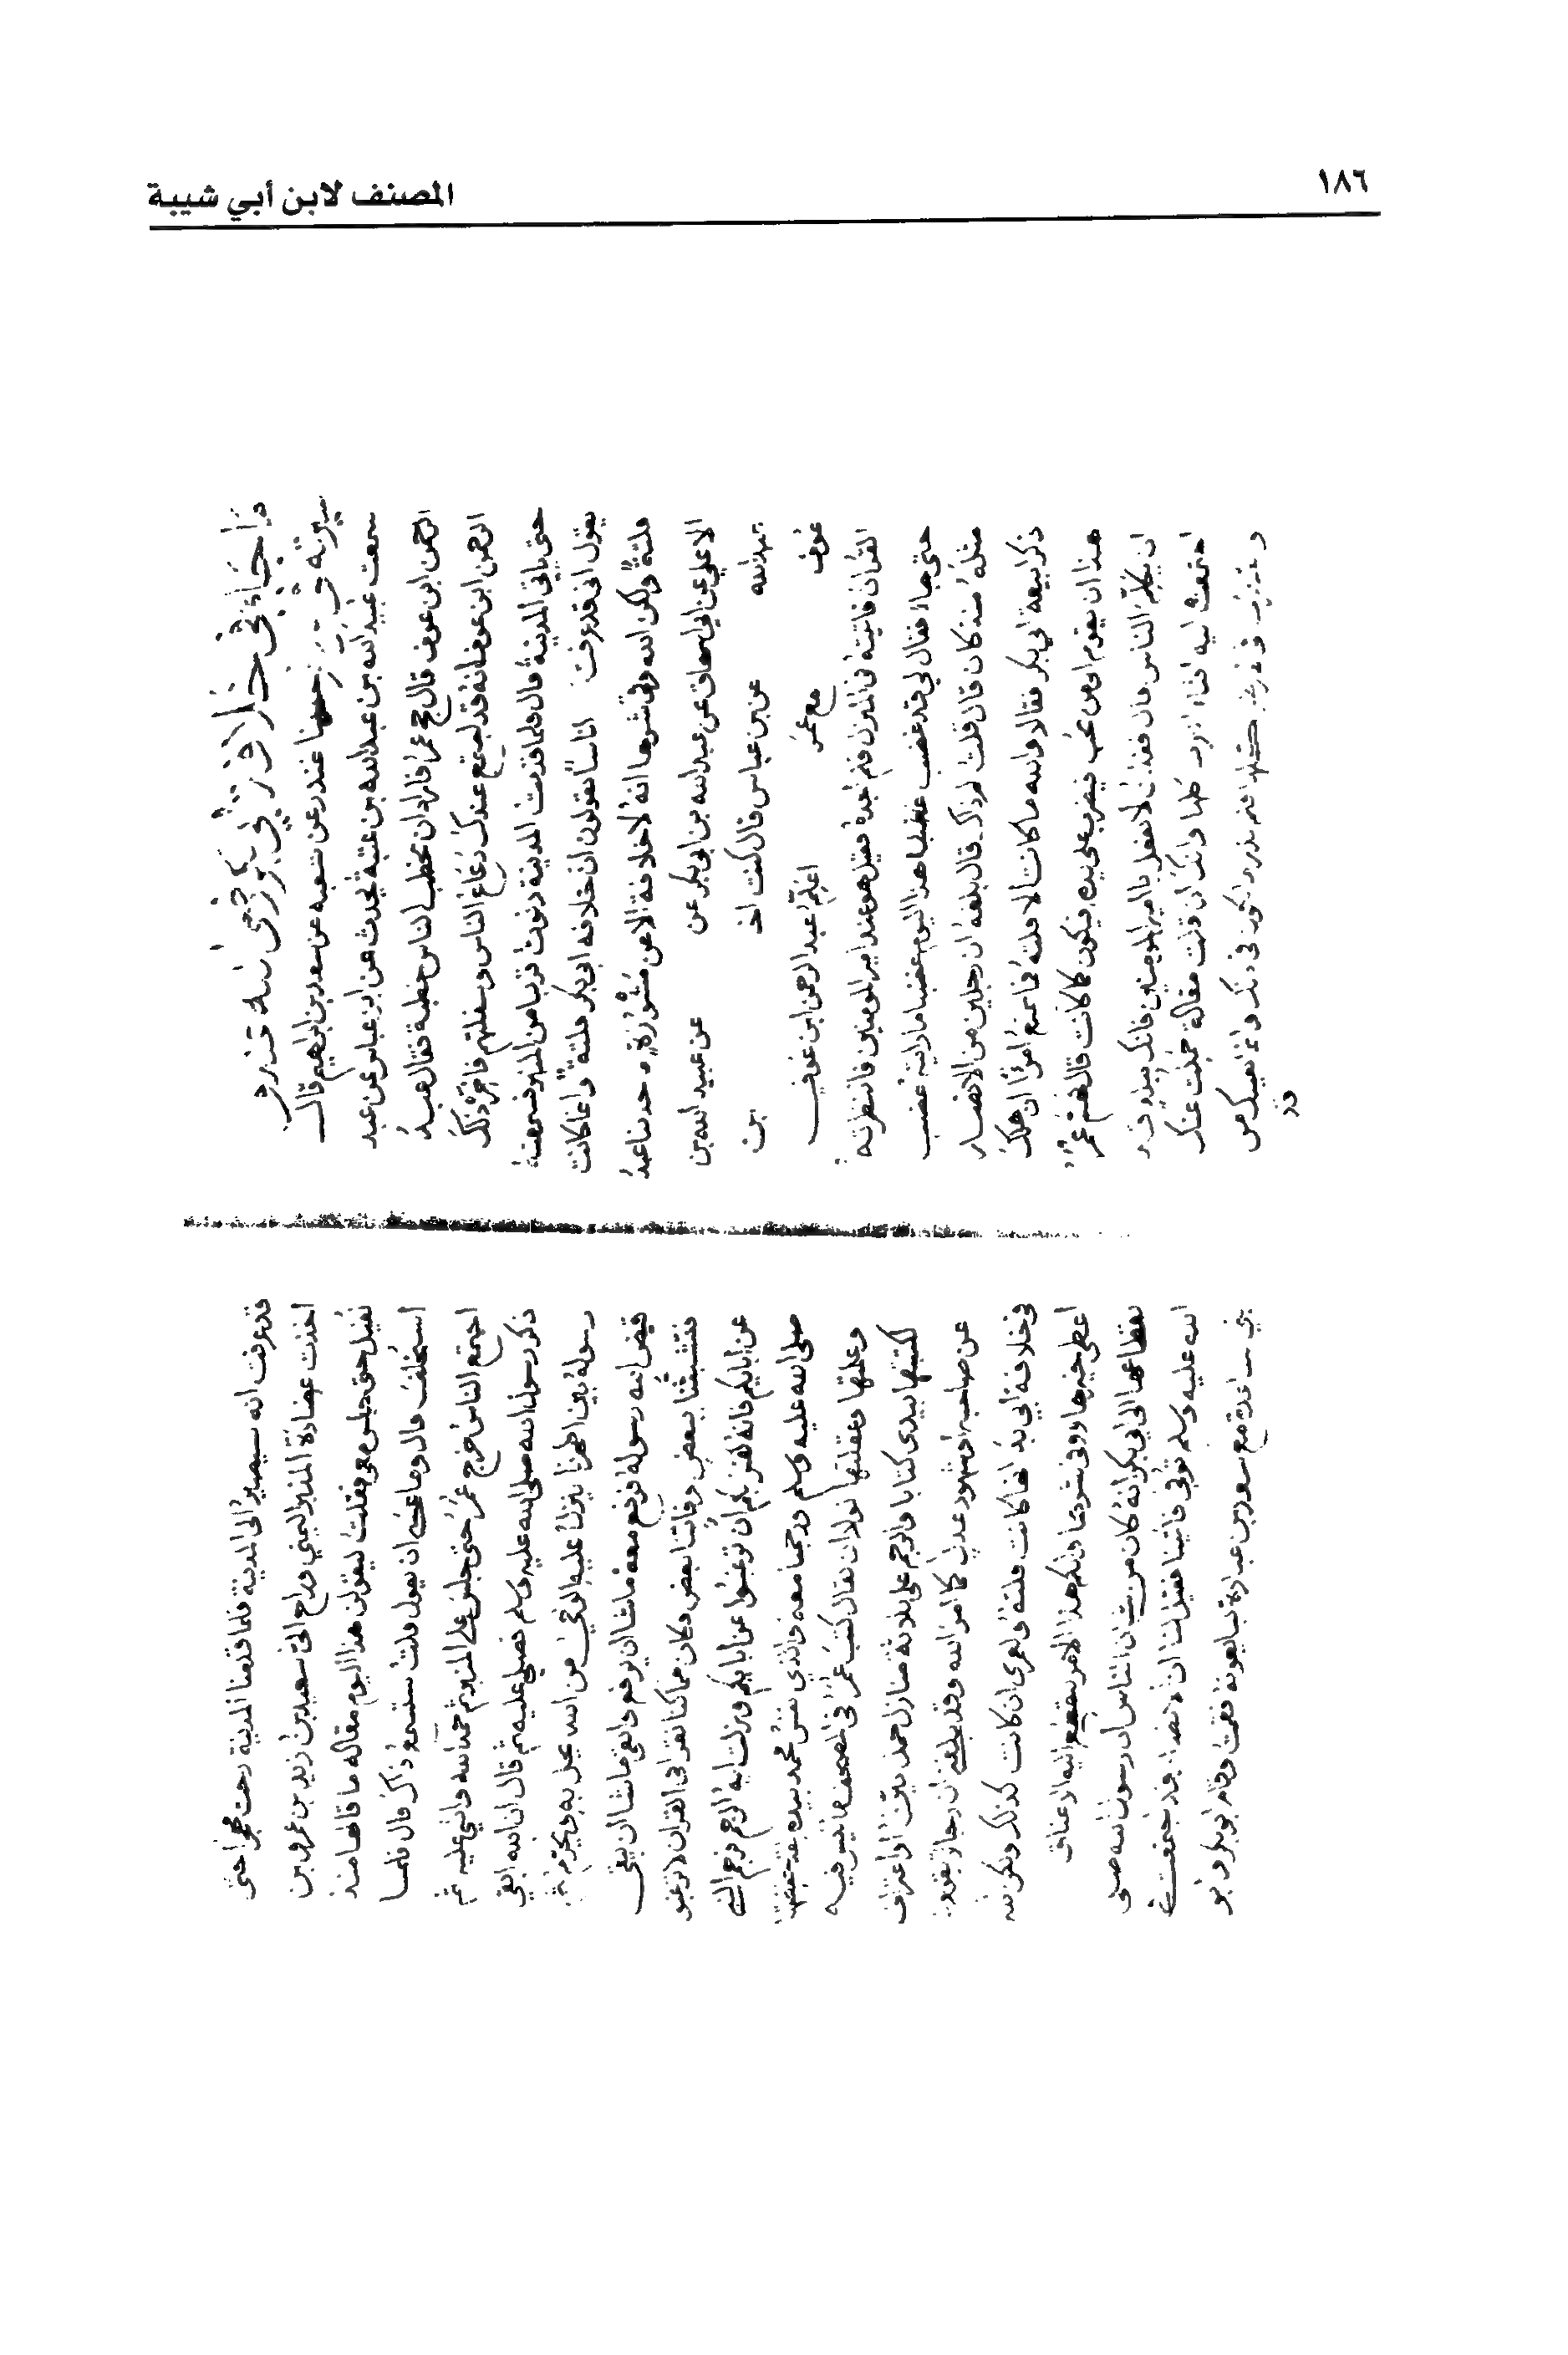 ١٨٦
المصنف لابن أبي شيبة
ما جاء في خلافة أبي بكر رضي الله عنه
غندر عن شعبه عن سعد بن ابرهيم قال
سمعت عبيد الله بن عبد الله بن عتبة يحدث عن ابن عباس عن عبد
الرحمن ابن عوف قال حج عمر فاراد ان يخطب الناس خطبة فقال عبد
الرحمن ابن عوف انه قد اجتمع عندك رعاع الناس وسفلتهم فاخر ذلك
حتى تاتي المدينة قال فلما قدمت المدينة دنوت قريبا من المنبر فسمعته
يقول اني قد عرفت اناسا يقولون ان خلافه ابي بكر فلتة وانما كانت
فلتة ولكن الله وقى شرها انه لا خلافة الا عن مشورة ه حدثنا عبد
الاعلي عن ابن اسحاق عن عبد الله بن ابي بكر عن
عن عبيد الله بن
عبد الله
عن بن عباس قال كنت اختـ
بن
عوف
مع عمر
اعلم عبد الرحمن ابن عوف
القران فاتيته في المنزل فلم اجده فقيل هو عند امير المومنين فانتظرته
حتى جاء فقال لي قد غضب هذا اليوم غضبا ما رايته غضب
مثله منذ كان قال قلت لم ذاك قال بلغه ان رجلين من الانصار
ذكرا بيعة ابي بكر فقالا والله ما كانت الا فلتة فما يمنع امرؤا ان هلك
هذا ان يقوم الى من يحب فيضرب على يده فيكون كما كانت قال فهم عمر
ان يكلم الناس قال فقلت لا تفعل يا امير المومنين فانك ببلد قد
اجتمعت اليه العرب كلها وانك ان قلت مقالة حملت عنك
وانما يعينك من
قد
قد عرفت انه سيصير الى المدينة فلما قدمنا المدينة رحت مهجرا حتى
اخذت عضادة المنبر اليمني وراح الي سعيد بن زيد بن عمرو بن
نفيل حتى جلس معي فقلت ليقولن هذا اليوم مقالة ما قالها منذ
استخلف قال وما عسى ان يقول قلت ستسمع ذاك قال فلما
اجتمع الناس خرج عمر حتى جلس على المنبر ثم حمد الله واثني عليه ثم
ذكر رسول الله صلى الله عليه وسلم فصلي عليه ثم قال ان الله ابقي
رسوله بين اظهرنا ينزل عليه الوحي من الله يحل به ويحرم ثم
قبض الله رسوله فرفع معه ما شا ان يرفع وابقي ما شا ان يبقى
فتشبثنا ببعض وفاتنا بعض فكان مما كنا نقرا في القران لا ترغبو
عن ابايكم فانه كفر بكم ان ترغبوا عن ابايكم ونزلت اية الرجم فرجم النبي
صلى الله عليه وسلم ورجمنا معه والذي نفس محمد بيده لقد حفظتها
وعلمتها وعقلتها لولا ان يقال كتب عمر في المصحف ما ليس فيه
لكتبتها بيدي كتابا والرجم على ثلاثة منازل حمل بين او اعتراف
عن صاحبه او شهود عدل كما امر الله وقد بلغني ان رجالا يقولون
في خلافة ابي بكر انها كانت فلتة ولعمري ان كانت كذلك ولكن الله
اعطى خيرها ووقى شرها وايكم هذا الامر تنقطع اليه الاعناق
كانقطاعها الى ابي بكر انه كان من شان الناس ان رسول الله صلى
الله عليه وسلم توفي فاتينا فقيل لنا ان الانصار قد اجتمعت في
بني ساعدة مع سعد بن عبادة يبايعونه فقمت وقام ابو بكر وابو